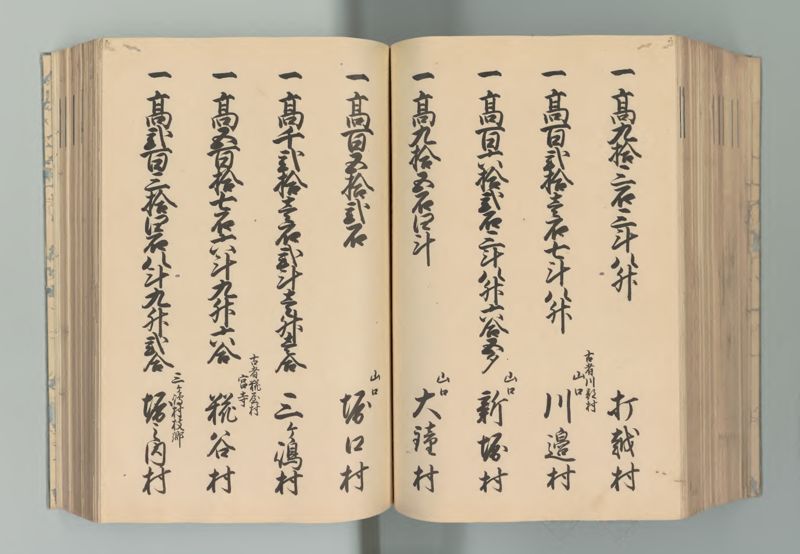 一高九拾三石三斗八升 打越村
一高百弐拾壱石七斗八升 古者川郡村 山口 川邉村
一高百六拾弐石三斗八升六合 山口 新堀村
一高九拾五石四斗 山口 大鐘村
一高百五拾弐石 山口 堀口村
一高千弐拾壱石弐斗壱升五合 三ケ嶋村
一高五百拾七石六斗九升六合 古者糀屋村 宮寺 糀谷村
一高弐百三拾四石八斗九升弐合 三ケ嶋村枝郷 堀之内村